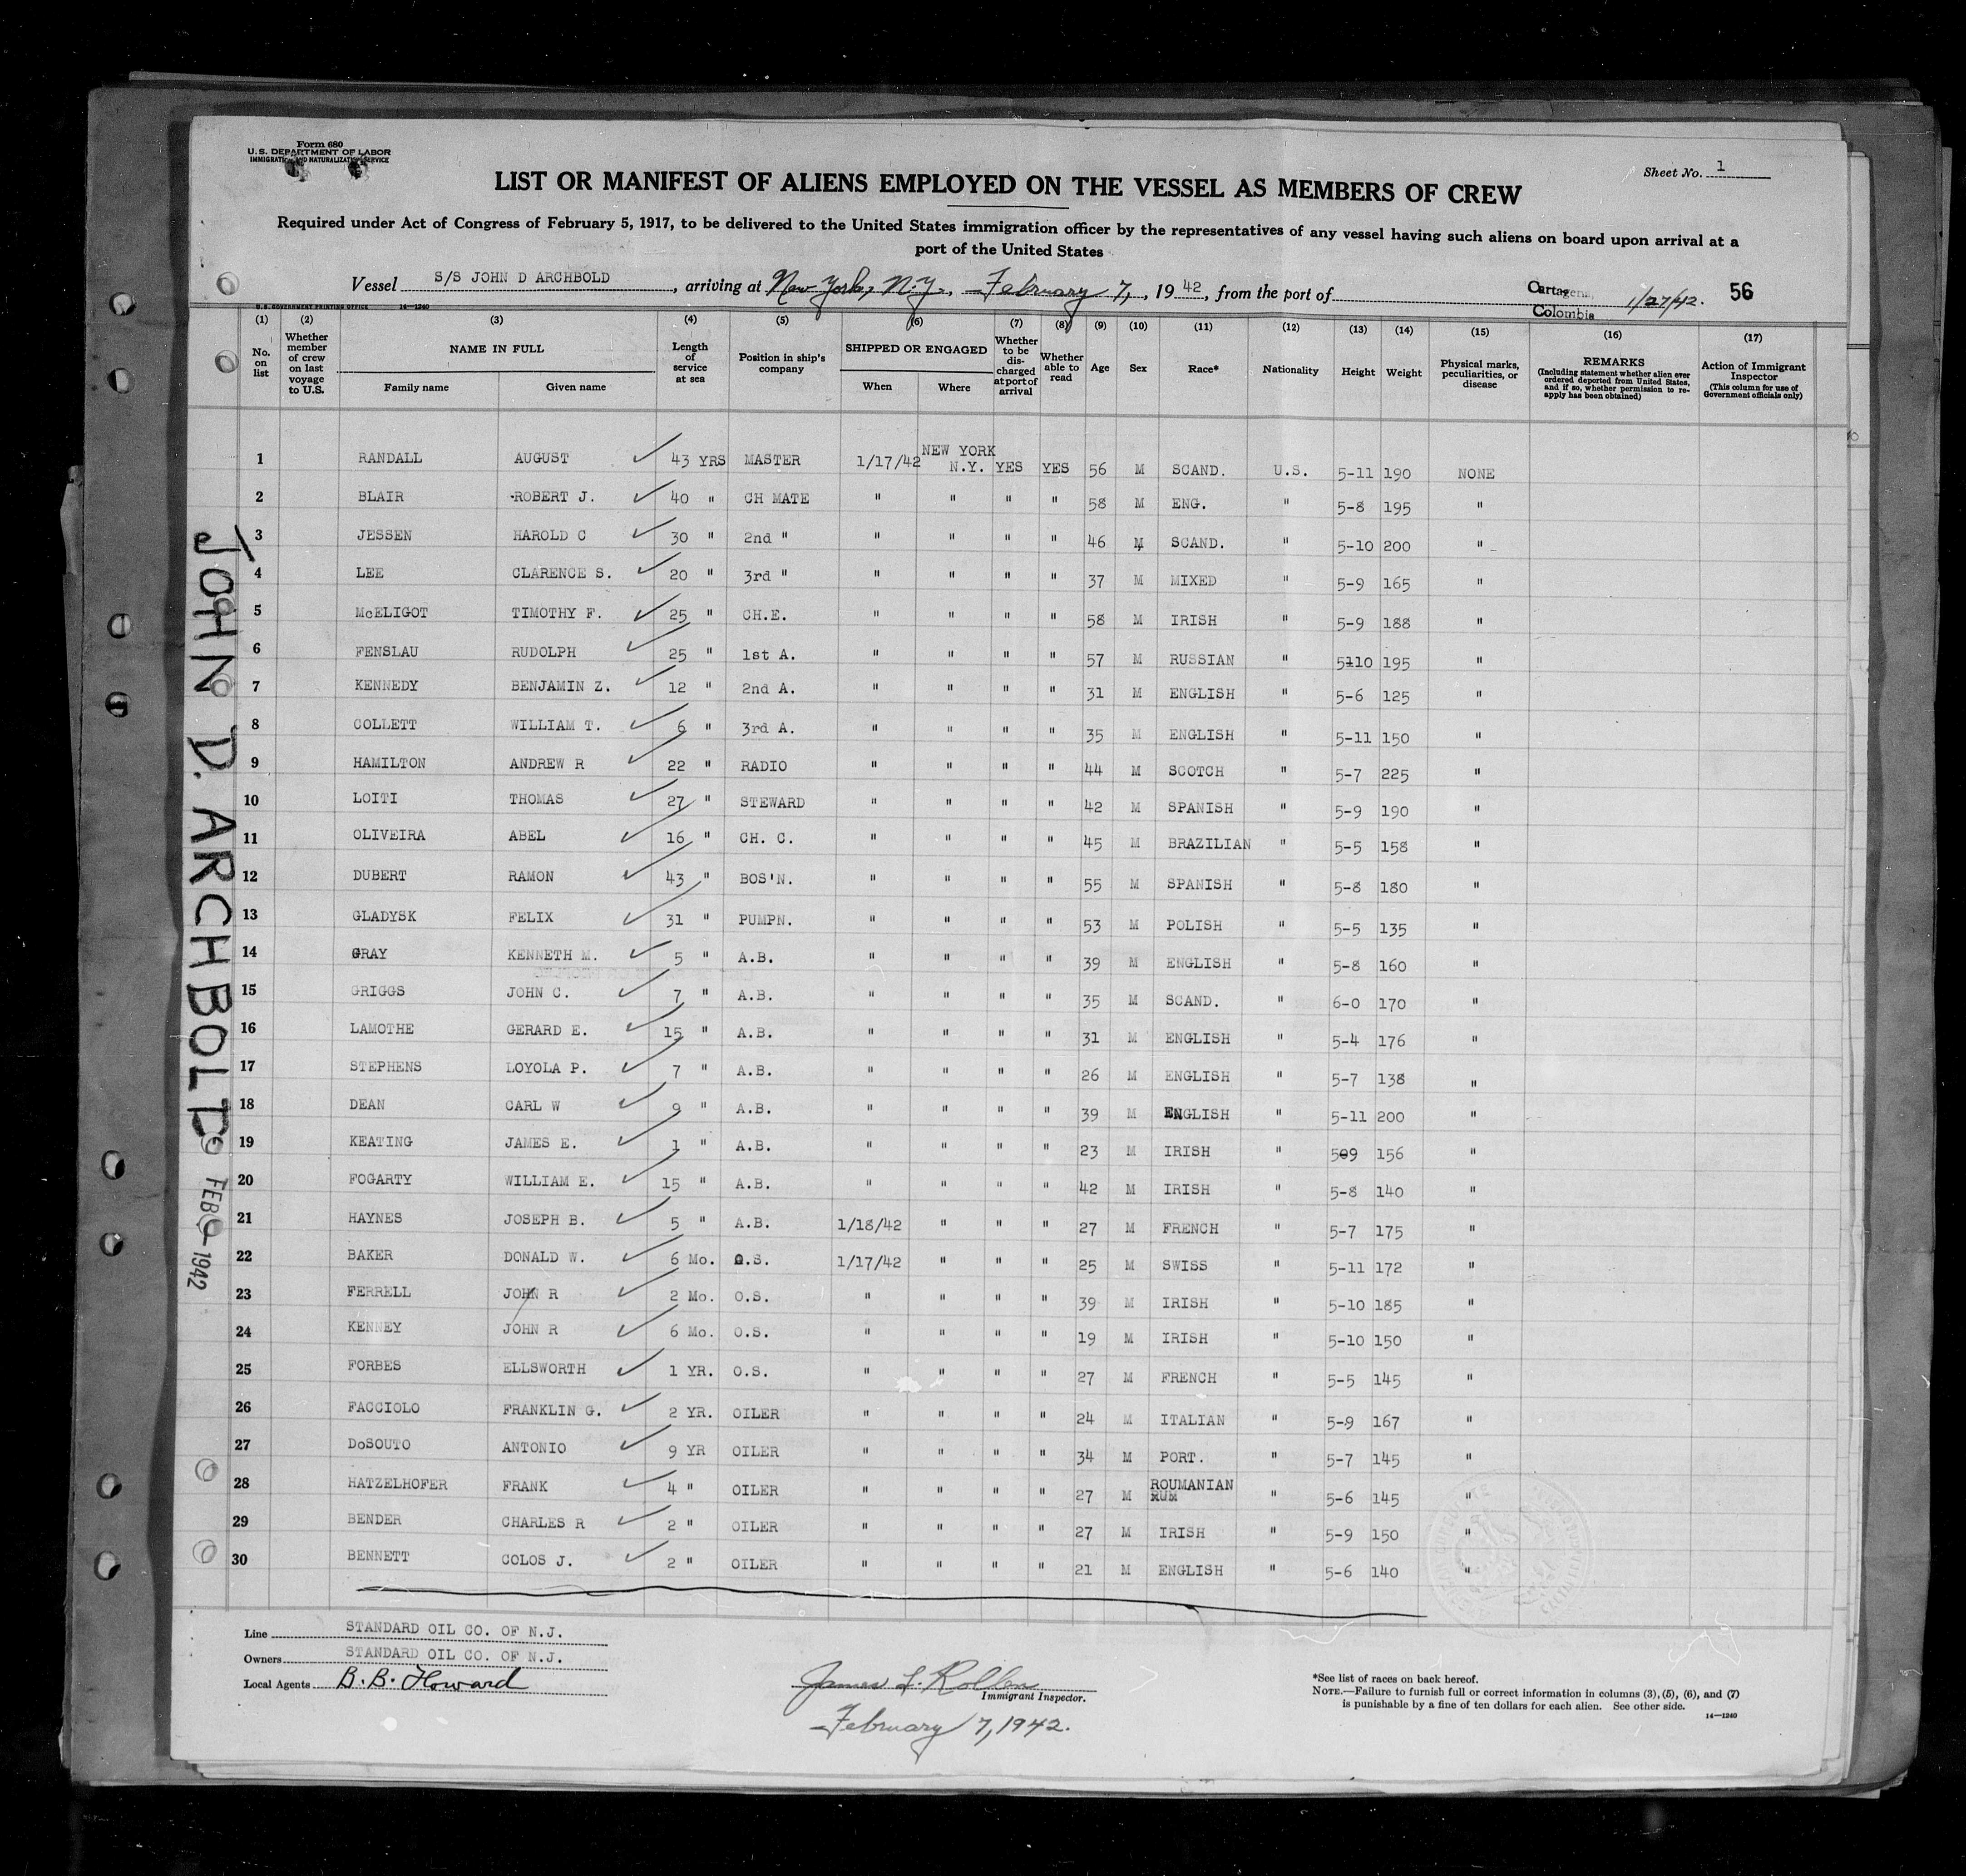 Form 680
U. S. DEPARTMENT OF LABOR
IMMIGRATION AND NATURALIZATION SERVICE
Sheet No. 1
LIST OR MANIFEST OF ALIENS EMPLOYED ON THE VESSEL AS MEMBERS OF CREW
Required under Act of Congress of February 5, 1917, to be delivered to the United States immigration officer by the representatives of any vessel having such aliens on board upon arrival at a
port of the United States
Vessel S/S JOHN D ARCHBOLD, arriving at New York, N.Y., February 7, 1942, from the port of Cartagena, Colombia 1/27/42. 56
U.S. GOVERNMENT PRINTING OFFICE 14—1240
(1) (2) (3) (4) (5) (6) (7) (8) (9) (10) (11) (12) (13) (14) (15) (16) (17)
No. on list
Whether member of crew on last voyage to U.S.
NAME IN FULL
Family name Given name
Length of service at sea
Position in ship's company
SHIPPED OR ENGAGED
When Where
Whether to be discharged at port of arrival
Whether able to read
Age
Sex
Race*
Nationality
Height
Weight
Physical marks, peculiarities, or disease
REMARKS
(Including statement whether alien ever ordered deported from United States, and if so, whether permission to reapply has been obtained)
Action of Immigrant Inspector
(This column for use of Government officials only)
1 RANDALL AUGUST 43 YRS MASTER 1/17/42 NEW YORK N.Y. YES YES 56 M SCAND. U.S. 5-11 190 NONE
2 BLAIR ROBERT J. 40 " CH MATE " " " " 58 M ENG. " 5-8 195 "
3 JESSEN HAROLD C 30 " 2nd " " " " " 46 M SCAND. " 5-10 200 "
4 LEE CLARENCE S. 20 " 3rd " " " " " 37 M MIXED " 5-9 165 "
5 McELIGOT TIMOTHY F. 25 " CH.E. " " " " 58 M IRISH " 5-9 188 "
6 FENSLAU RUDOLPH 25 " 1st A. " " " " 57 M RUSSIAN " 5110 195 "
7 KENNEDY BENJAMIN Z. 12 " 2nd A. " " " " 31 M ENGLISH " 5-6 125 "
8 COLLETT WILLIAM T. 6 " 3rd A. " " " " 35 M ENGLISH " 5-11 150 "
9 HAMILTON ANDREW R 22 " RADIO " " " " 44 M SCOTCH " 5-7 225 "
10 LOITI THOMAS 27 " STEWARD " " " " 42 M SPANISH " 5-9 190 "
11 OLIVEIRA ABEL 16 " CH. C. " " " " 45 M BRAZILIAN " 5-5 158 "
12 DUBERT RAMON 43 " BOS'N. " " " " 55 M SPANISH " 5-8 180 "
13 GLADYSK FELIX 31 " PUMPN. " " " " 53 M POLISH " 5-5 135 "
14 GRAY KENNETH M. 5 " A.B. " " " " 39 M ENGLISH " 5-8 160 "
15 GRIGGS JOHN C. 7 " A.B. " " " " 35 M SCAND. " 6-0 170 "
16 LAMOTHE GERARD E. 15 " A.B. " " " " 31 M ENGLISH " 5-4 176 "
17 STEPHENS LOYOLA P. 7 " A.B. " " " " 26 M ENGLISH " 5-7 138 "
18 DEAN CARL W 9 " A.B. " " " " 39 M ENGLISH " 5-11 200 "
19 KEATING JAMES E. 1 " A.B. " " " " 23 M IRISH " 509 156 "
20 FOGARTY WILLIAM E. 15 " A.B. " " " " 42 M IRISH " 5-8 140 "
21 HAYNES JOSEPH B. 5 " A.B. 1/18/42 " " " 27 M FRENCH " 5-7 175 "
22 BAKER DONALD W. 6 Mo. O.S. 1/17/42 " " " 25 M SWISS " 5-11 172 "
23 FERRELL JOHN R 2 Mo. O.S. " " " " 39 M IRISH " 5-10 185 "
24 KENNEY JOHN R 6 Mo. O.S. " " " " 19 M IRISH " 5-10 150 "
25 FORBES ELLSWORTH 1 YR. O.S. " " " " 27 M FRENCH " 5-5 145 "
26 FACCIOLO FRANKLIN G. 2 YR. OILER " " " " 24 M ITALIAN " 5-9 167 "
27 DoSOUTO ANTONIO 9 YR OILER " " " " 34 M PORT. " 5-7 145 "
28 HATZELHOFER FRANK 4 " OILER " " " " 27 M ROUMANIAN RUM " 5-6 145 "
29 BENDER CHARLES R 2 " OILER " " " " 27 M IRISH " 5-9 150 "
30 BENNETT COLOS J. 2 " OILER " " " " 21 M ENGLISH " 5-6 140 "
JOHN D. ARCHBOLD FEB 1942
Line STANDARD OIL CO. OF N.J.
Owners STANDARD OIL CO. OF N.J.
Local Agents B.B. Howard
James L. Rollen
Immigrant Inspector.
February 7, 1942.
*See list of races on back hereof.
NOTE.—Failure to furnish full or correct information in columns (3), (5), (6), and (7)
is punishable by a fine of ten dollars for each alien. See other side.
14—1240